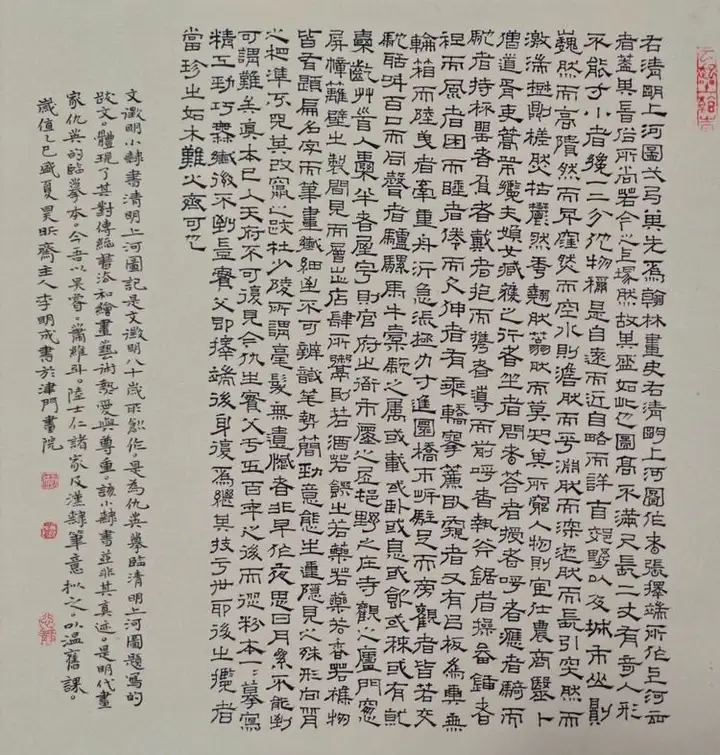 右清明上河圖弋馬其先為翰林畫史右清明上河圖作者張擇端所作上河云
者蓋其晉俗所尚若今之上塚然故其盛如此也圖高不滿尺長二丈有奇人形
不能寸小者纔一二分他物稱是自遠而近自略而詳自郊野以及城市山則
巍然而高隤然而卑窪然而空水則澹然而平淵然而深迤然而長引突然而
激湍樹則槎然枯鬱然秀翹然蓊然而莫知其所窮人物則官仕農商醫卜
僧道胥吏篙帶纜夫婦女臧獲之行者坐者問者答者授者呼者應者騎而
馳者持杯罌者負者戴者抱而攜者導而前呼者執斧鋸者操畚鍤者
袒而風者困而睡者倦而欠伸者有乘轎搴簾以窺者又有以板為輿無
輪箱而陸曳者牽重舟泝急流極力寸進圜橋匝岸駐足而旁觀者皆若交
馳助叫百口而同聲者驢騾馬牛橐駝之屬或載或臥或息或飲或秣或有就
橐齕艸首入橐半者屋宇則官府之衙市廛之居邨野之庄寺觀之廬門窗
屏幛籬壁之製間見而層出店肆所鬻則若酒若饌若藥若香若襍物
皆有題扁名字而筆畫纖細至不可辨識筆勢簡勁意態生運隱見之殊形向背
之相準不見其改竄之跡杜少陵所謂毫髮無遺憾者非早作夜思日月累不能到
可謂難矣真本已入天府不可復見今仇生實父于五百年之後而從粉本一一摹寫
精工勁巧無纖微不到豈實父即擇端後身復為繼其技于世耶後之覽者
當珍之如木難火齊可也
文徵明小隸書清明上河圖記是文徵明八十歲所作是為仇英摹臨清明上河圖題寫的
欵文體現了其對傳統書法和繪畫藝術熱愛與尊重該小隸書並非其真迹是明代畫
家仇英的臨摹本今吾以吳睿蕭雅斗陸士仁諸家及漢隸筆意擬之以温舊課
歲值乙巳盛夏昊昕齋主人李明戎書於津門書院